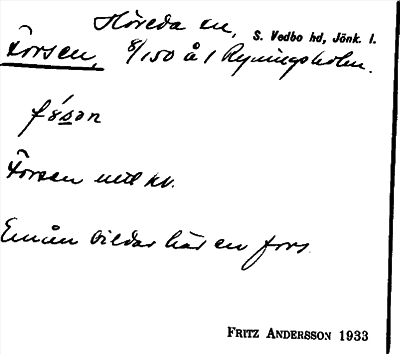 Höreda sn, S. Vedbo hd, Jönk. l.
Forsen, 8/150 å 1 Ryningsholm.
fó̱sən
Forsen utl kv.
Emån bildar här en fors
FRITZ ANDERSSON 1933